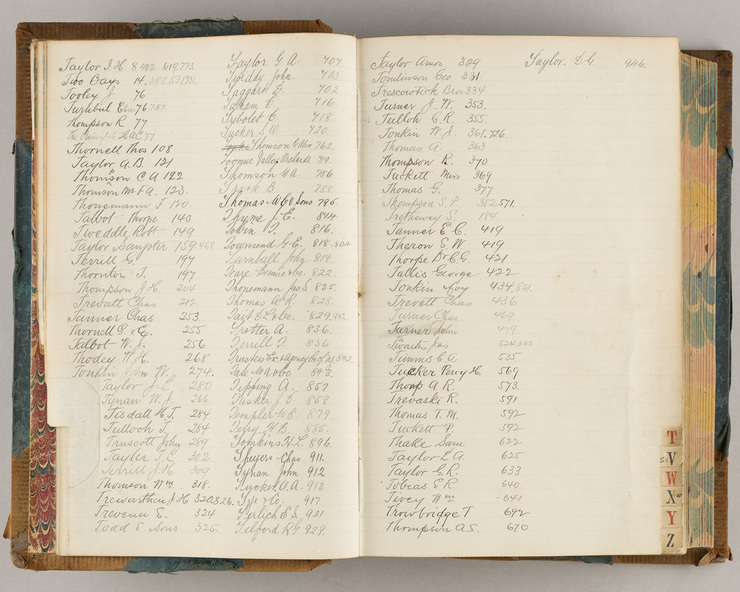 Taylor J. H. 8 402 619.773
Two Bays 14, 388.531
Tooley J. 76
Turnbul E 76.757
Thompson R 77
The 77
Thornell Thos 108
Taylor A. B 121
Thomson C A 122
Thomson Mr F. A. 123.
Thonemann F 120.
Talbot Thorpe 140
Tweddle, Robt 149
Taylor Sangster 159,468
Terrill G. 197
Thornton T. 197
Thompson J. H. 204
Trevatt Chas 212
Tanner Chas 253
Thornell P. & G. 255
Talbot W. J. 256
Thodey W. H. 268
Tonkin John W. 274.
Taylor J. E. 280
Tynan W. J. 266
Tisdall H. T. 284
Tulloch T. 284
Truscott John 289
Tayler T. E. 302
Terrill J. H. 309
Thomson Wm 318.
Trewarthen J. H 320.526.
Trevena E. 324
Todd & Sons 325.
Taylor G A 404
Tweddy John 403
Taggart G. 702
Tatham C. 716
Sybolet C 718
Tucker S. W. 720.
Thomson 762.
Toorque Valley Orchards 79
Thomson W A. 756
Track B 788
Thomas M C & Sons 795.
Thyme J. E. 804
Tobin T. 816.
Townsend G. E. 818.804
Turnball John 819.
822.
Thonemann 835
Thomas A. R. 828.
Tait 829,902
Trotter A. 836.
Terrill T. 836
Tate W A & Co 843.
Topping A. 857
Tasker J. B 858
Templer W. E. 879
Terry H. B. 885.
Tomkins H. L. 896.
Thuyers Chas 911.
Tyhan John 912
Tucker A. A. 913
Tye & Co. 917
Terlich E. S. 921
Telford R. G 929.
Taylor Amos 329
Tomlinson Geo 331
Trescowthick Bros 334
Turner J. W. 353.
Tulloh C. R. 355.
Tonkin W. J. 361.726.
Thomas A. 363
Thompson R. 370
Tuckett Miss 369
Thomas G. 377
Thompson S. P. 382.571.
Trethewey S. 184
Tanner E. C. 419
Theron E. W 419
Thorpe Dr C. G. 421
Tallis George 422
Tonkin Roy 434,841
Trevett Chas 436
Turner Chas 469
Turner John 479
Twaits Jas
Timms C. A. 535
Tucker Percy H. 569
Thorp A. R. 573.
Trevaski R. 591
Thomas T. M. 592
Tuckett P. 592
Thake Sam 622
Taylor L. A. 625
Taylor C. R. 633
Tobias E. R. 640
Tivey Wm 641
Trowbridge T 692
Thompson A. S. 670
Taylor. D. G 946.
T
V
W
X
Y
Z